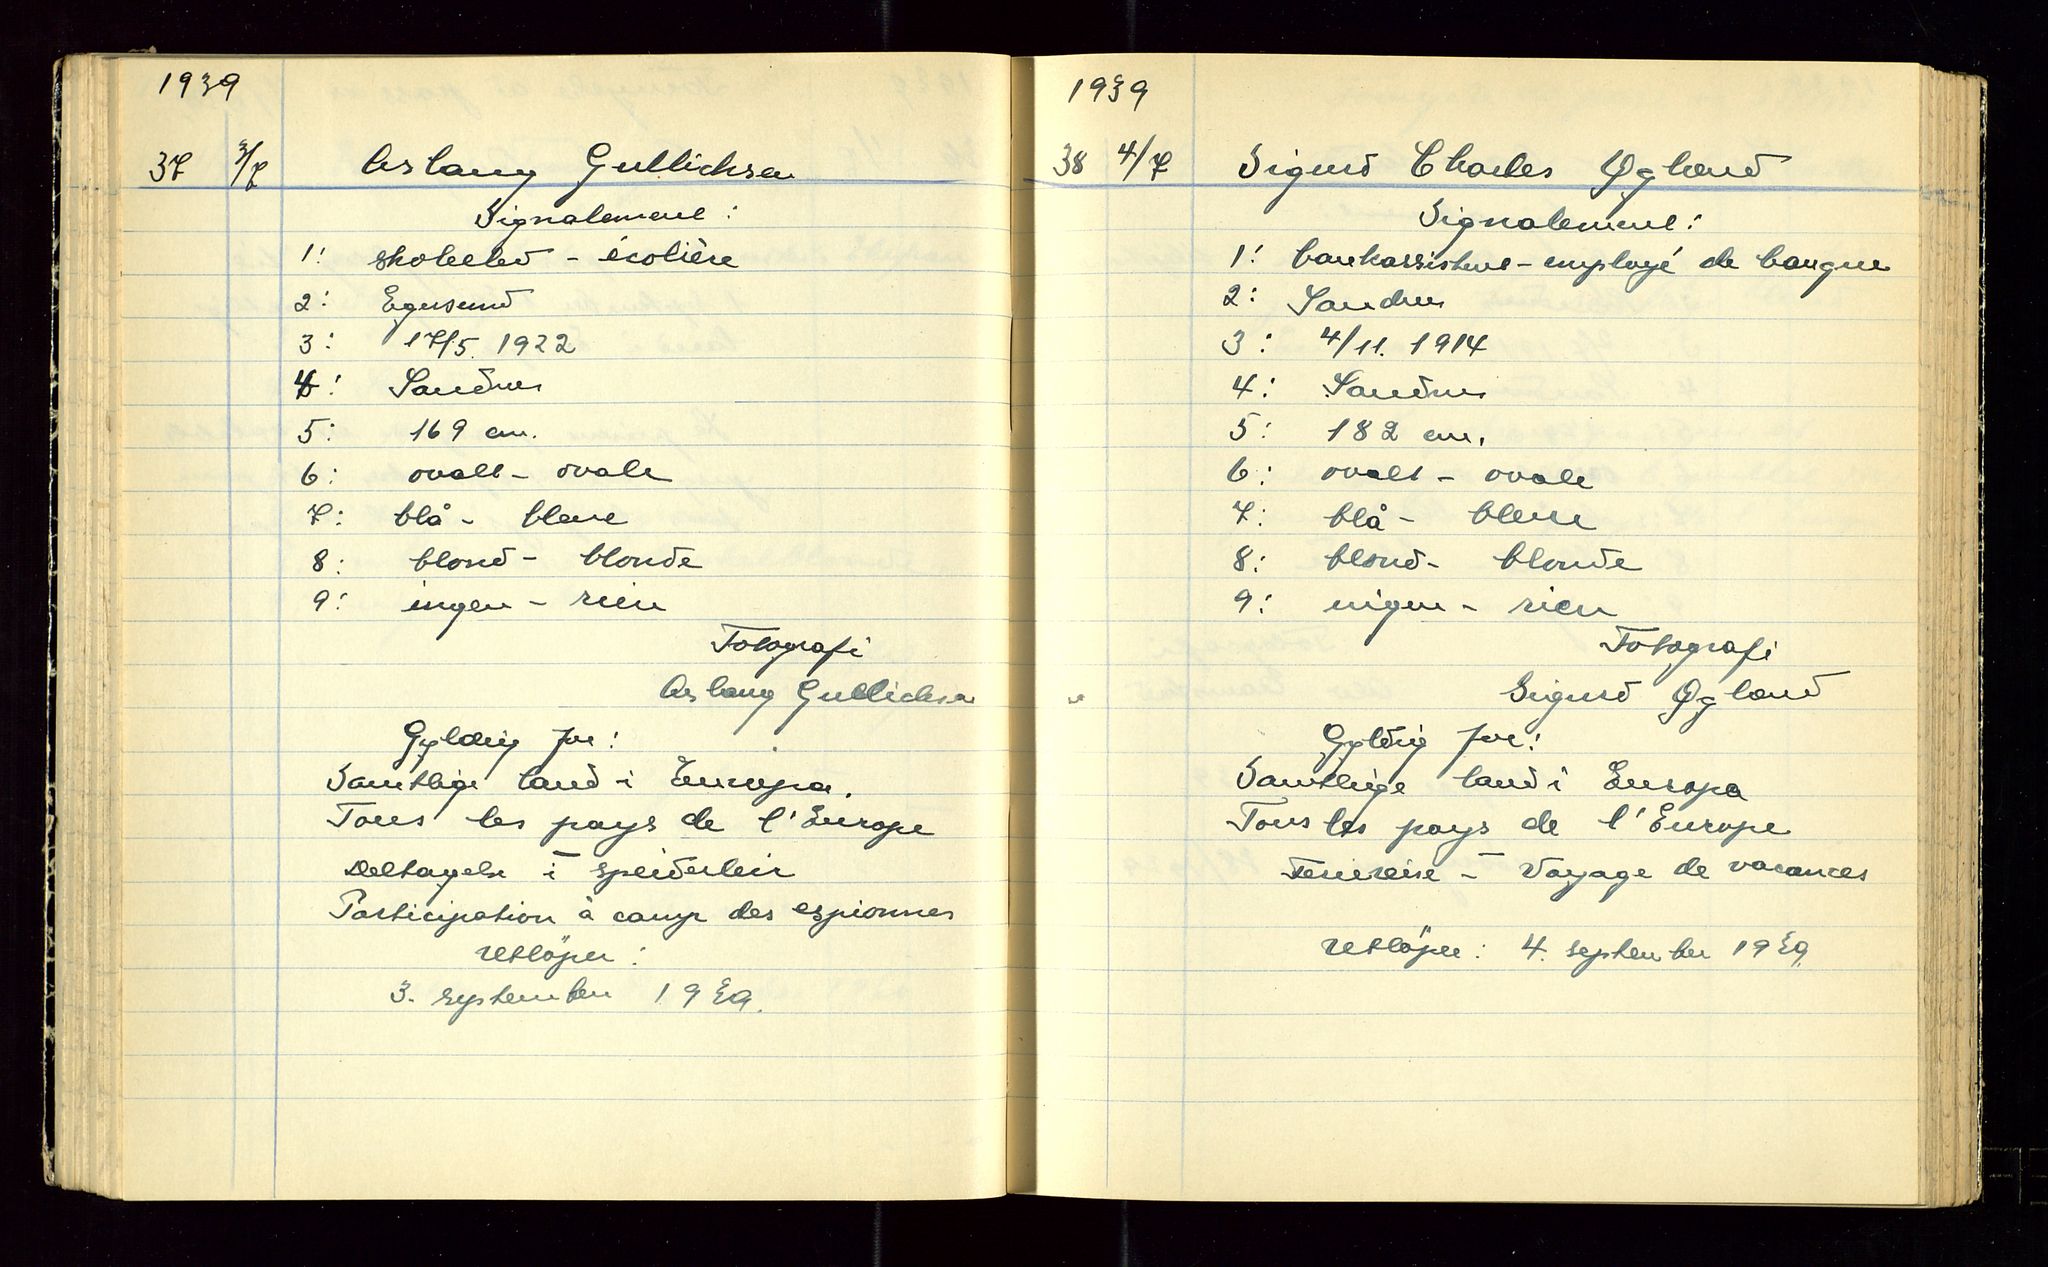 1939
37 3/7 Aslaug Gullichsen
Signalement:
1: skoleelev - écolière
2: Egersund
3: 17/5. 1922
4: Sandnes
5: 169 cm.
6: ovalt - ovale
7: blå - bleue
8: blond - blonde
9: ingen - rien
Fotografi
Aslaug Gullichsen
Gyldig for:
Samtlige land i Europa.
Tous les pays de l'Europe
Deltagelse i speiderleir
Participation à camp des espionnes
Utløper:
3. september 1939.
1939
38 4/7 Sigurd Charles Øglænd
Signalement:
1: bankassistent - employé de banque
2: Sandnes
3: 4/11. 1914
4: Sandnes
5: 182 cm.
6: ovalt - ovale
7: blå - bleue
8: blond - blonde
9: ingen - rien
Fotografi
Sigurd Øglænd
Gyldig for:
Samtlige land i Europa
Tous les pays de l'Europe
Feriereise - Voyage de vacances
Utløper: 4. september 1939.